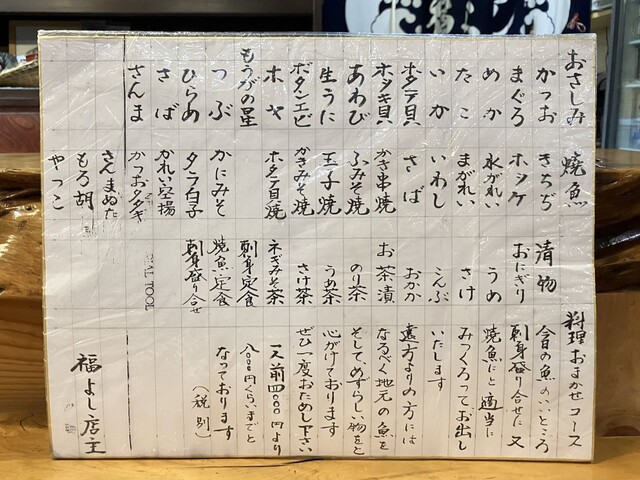 おさしみ
かつお
まぐろ
めか
たこ
いか
ホタテ貝
ホタキ貝
あわび
生うに
ボタンエビ
ホヤ
もうかの星
つぶ
ひらめ
さば
さんま
焼魚
きちぢ
ホッケ
水がれい
まがれい
いわし
さば
かき串焼
ふみそ焼
玉子焼
かきみそ焼
ホタテ貝焼
かにみそ
タラ白子
かれい空揚
かつおタタキ
さんまぬた
もろ胡
やっこ
漬物
おにぎり
うめ
さけ
こんぶ
おかか
お茶漬
のり茶
うめ茶
さけ茶
ネギみそ茶
刺身定食
焼魚定食
刺身盛り合せ
料理おまかせコース
今日の魚のいいところ
刺身盛り合せた又
焼魚にと適当に
みつくろってお出し
いたします
遠方よりの方には
なるべく地元の魚を
そして、めずらしい物をと
心がけております
ぜひ一度おためし下さい
一人前四〇〇〇円より
八〇〇〇円くらいまでと
なっております
(税別)
福よし店主